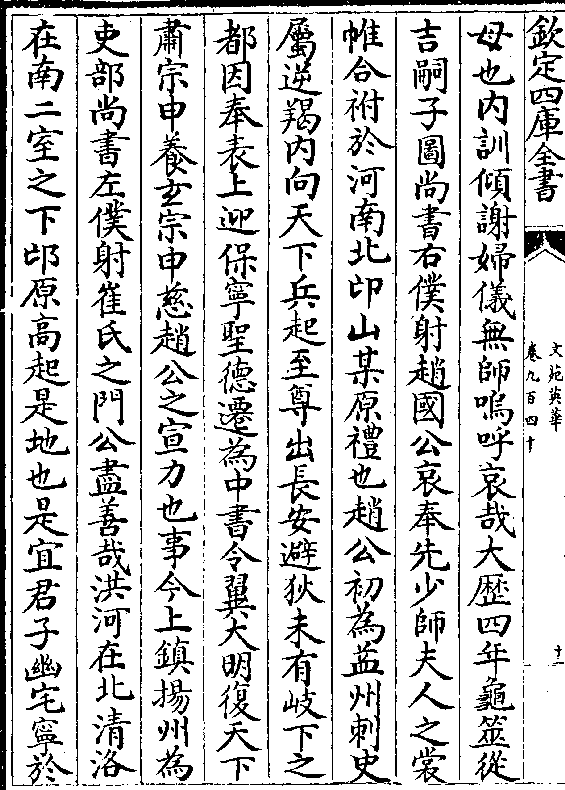 欽定四庫全書
文苑英華
卷九百四十
十一
母也内訓傾謝婦儀無師嗚呼哀哉大歴四年龜筮從
吉嗣子圖尚書右僕射趙國公哀奉先少師夫人之裳
帷合祔於河南北邙山某原禮也趙公初為蓝州刺史
屬逆羯内向天下兵起至尊出長安避狄未有岐下之
都因奉表上迎保寧聖德遷為中書令翼大明復天下
肅宗申養玄宗申慈趙公之宣力也事今上鎮揚州為
吏部尚書左僕射崔氏之門公盡善哉洪河在北清洛
在南二室之下邙原高起是地也是宜君子幽宅寧於